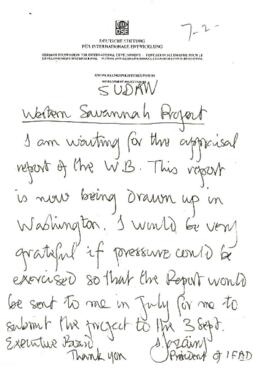 7-2-
DEUTSCHE STIFTUNG
FÜR INTERNATIONALE ENTWICKLUNG
SUDAN
Western Savannah Project
I am waiting for the appraisal
report of the W.B. This report
is now being drawn up in
Washington. I would be very
grateful if pressure could be
exercised so that the Report would
be sent to me in July for me to
submit the project to the 3 Sept.
Executive Board
Thank you
President of IFAD